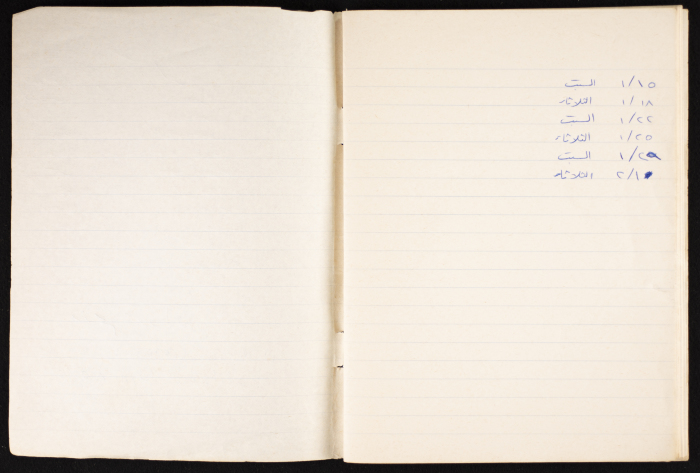 ١/١٥ السبت
١/١٨ الثلاثاء
١/٢٢ السبت
١/٢٥ الثلاثاء
١/٢٩ السبت
٢/١ الثلاثاء